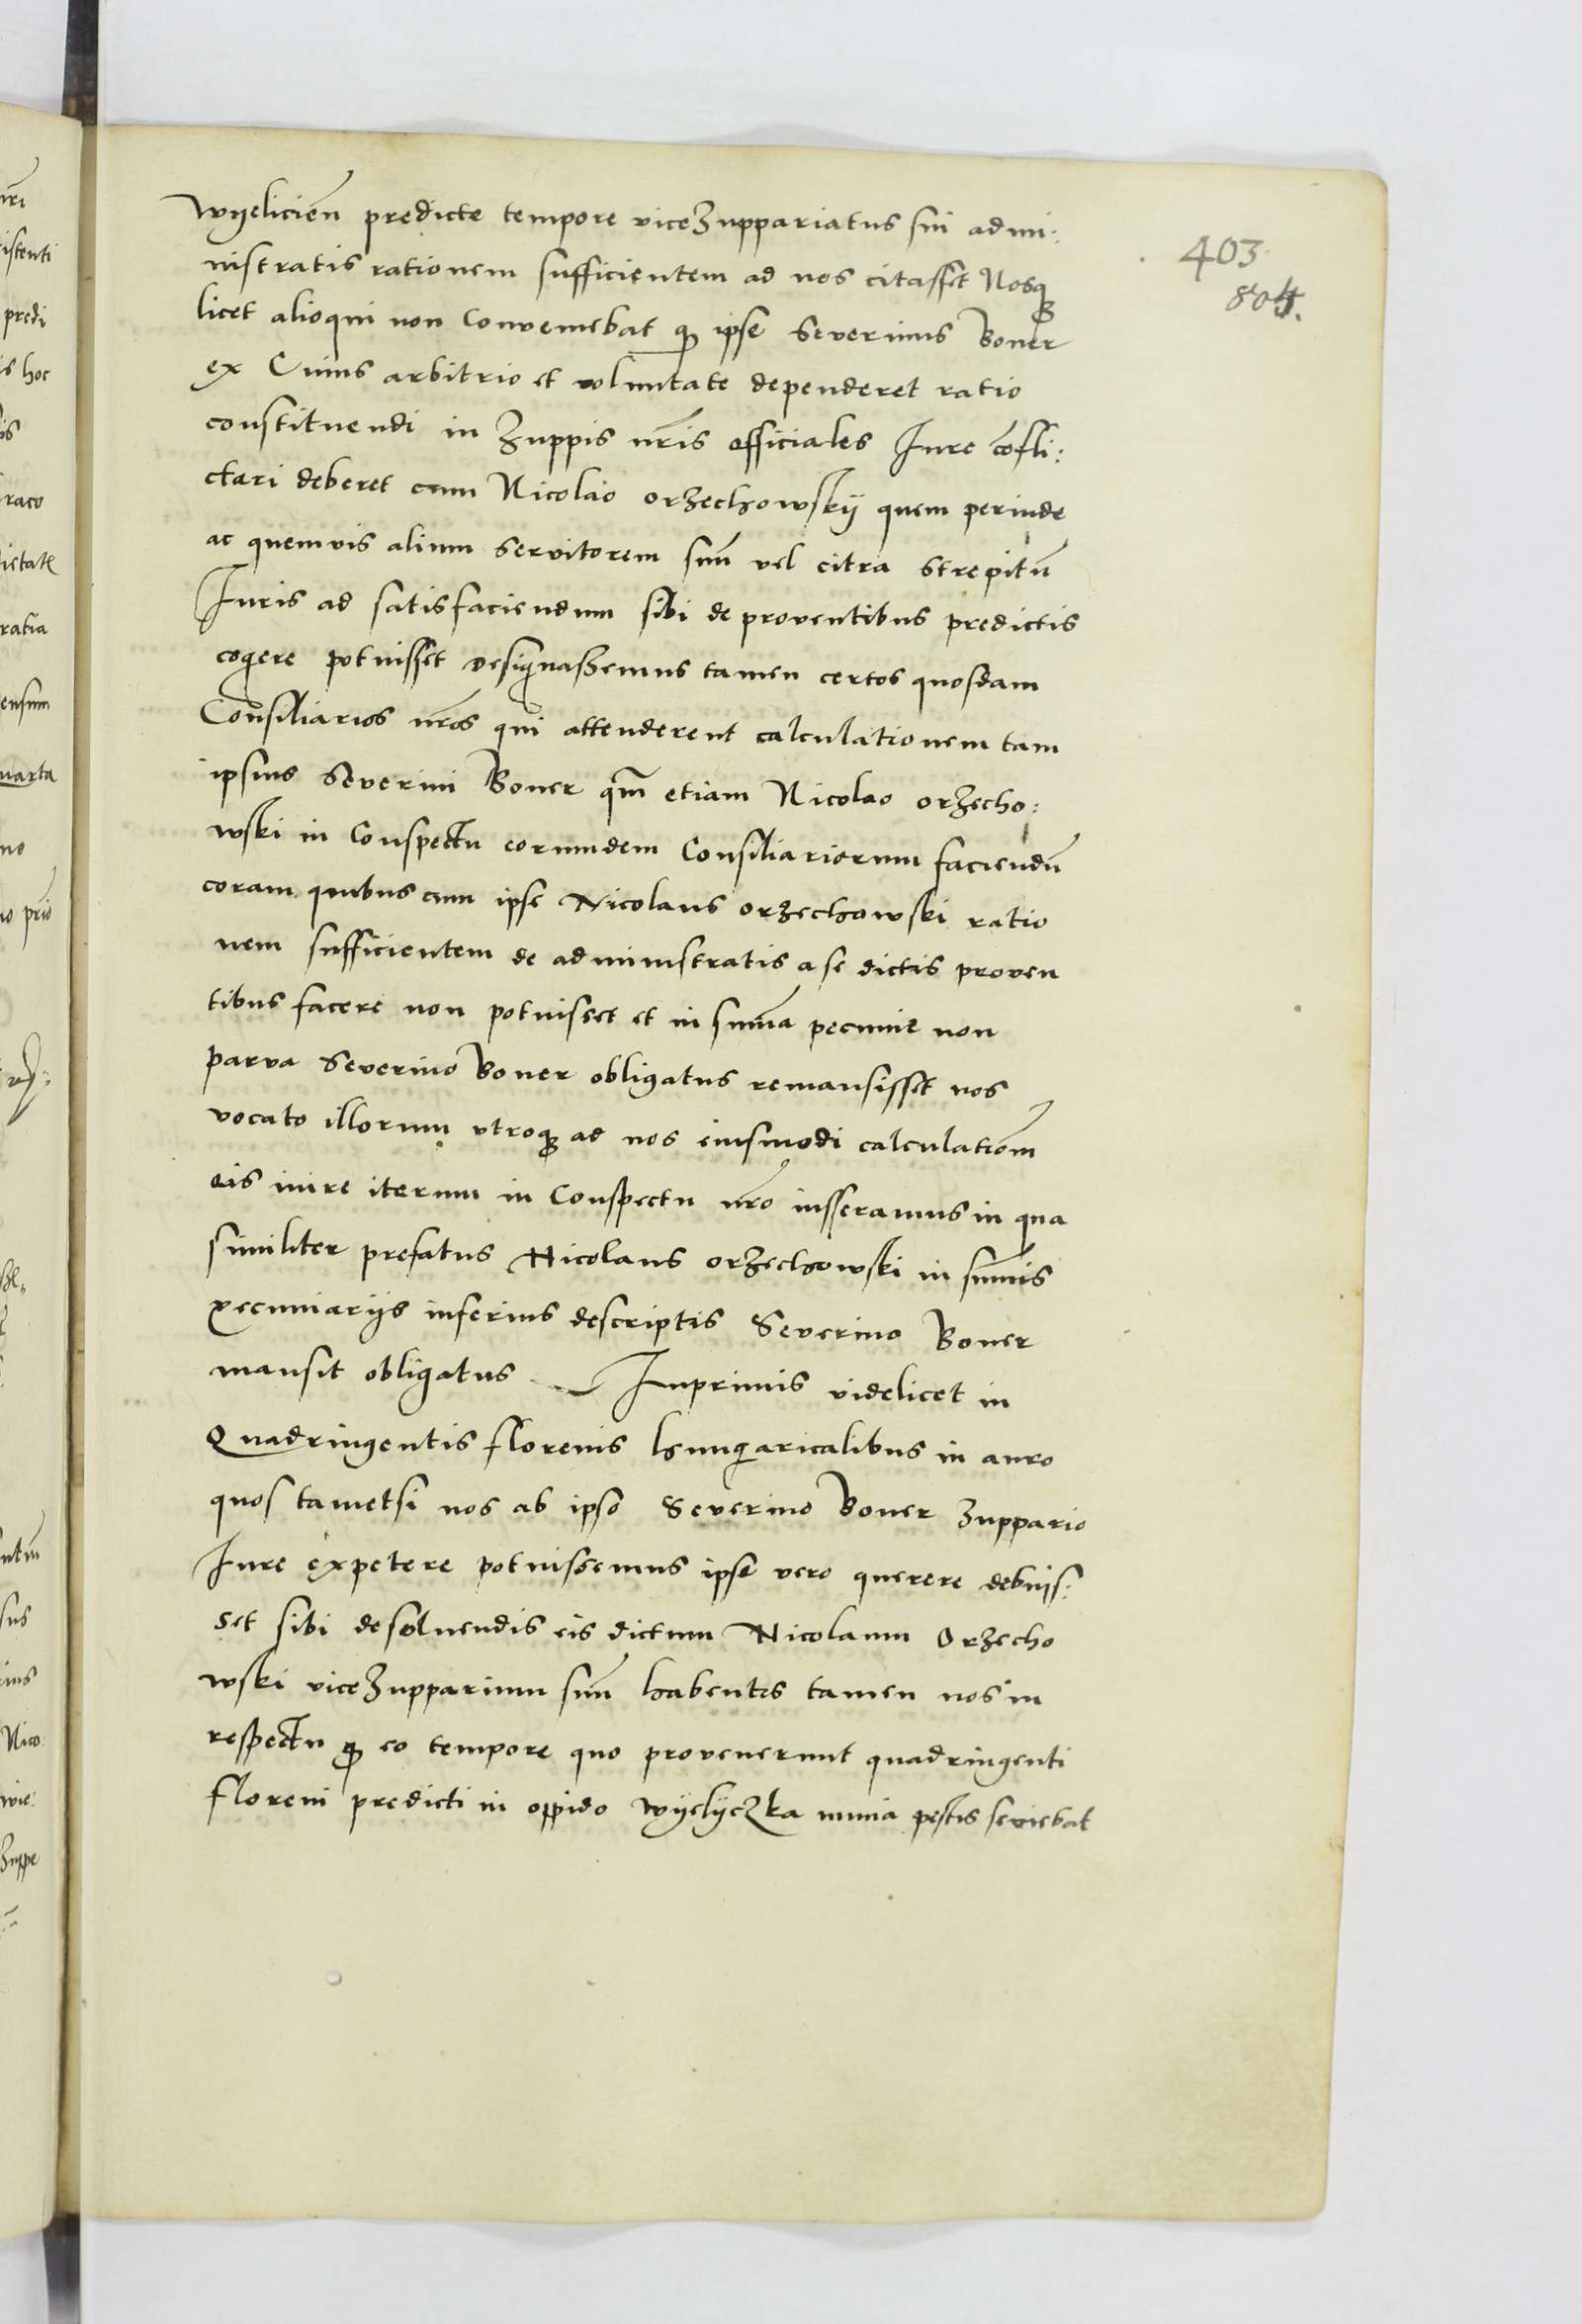 403
804.
wyelicień predicte tempore vicezuppariatus sui admi:
nistratis rationem sufficientem ad nos citasset Nosq
licet alioqui non Conveniebat q ipse Severinus Boner
ex Cuius arbitrio et voluntate dependeret ratio
constituendi in Zuppis nr̃is officiales Iure cõfli:
ctari deberet cum Nicolao orzechowskij quem perinde
ac quemvis alium servitorem suũ vel citra strepitũ
Iuris ad satisfaciendum sibi de proventibus predictis
cogere potuisset designassemus tamen certos quosdam
Consiliarios nr̃os qui attenderent calculationem tam
ipsius Severini Boner qm̃ etiam Nicolao orzecho:
wski in Conspectu eorumdem Consiliariorum faciendũ
coram quibus cum ipse Nicolaus orzechowski ratio
nem sufficientem de administratis a se dictis proven
tibus facere non potuisset et in sum̃a pecunie non
parva Severino Boner obligatus remansisset nos
vocato illorum utroq ad nos eiusmodi calculatiom̃
eis inire iterum in Conspectu nr̃o iusseramus in qua
similiter prefatus Nicolaus orzechowski in sum̃is
pecuniarijs inferius descriptis Severino Boner
mansit obligatus Inprimis videlicet in
Quadringentis florenis hungaricalibus in auro
quos tametsi nos ab ipso Severino Boner Zuppario
Iure expetere potuissemus ipse vero querere debuis:
set sibi de solvendis eis dictum Nicolaum Orzecho
wski vicezupparium suũ habentes tamen nos in
respectu q eo tempore quo provenerunt quadringenti
floreni predicti in oppido wyelyczka nimia pestis seviebat